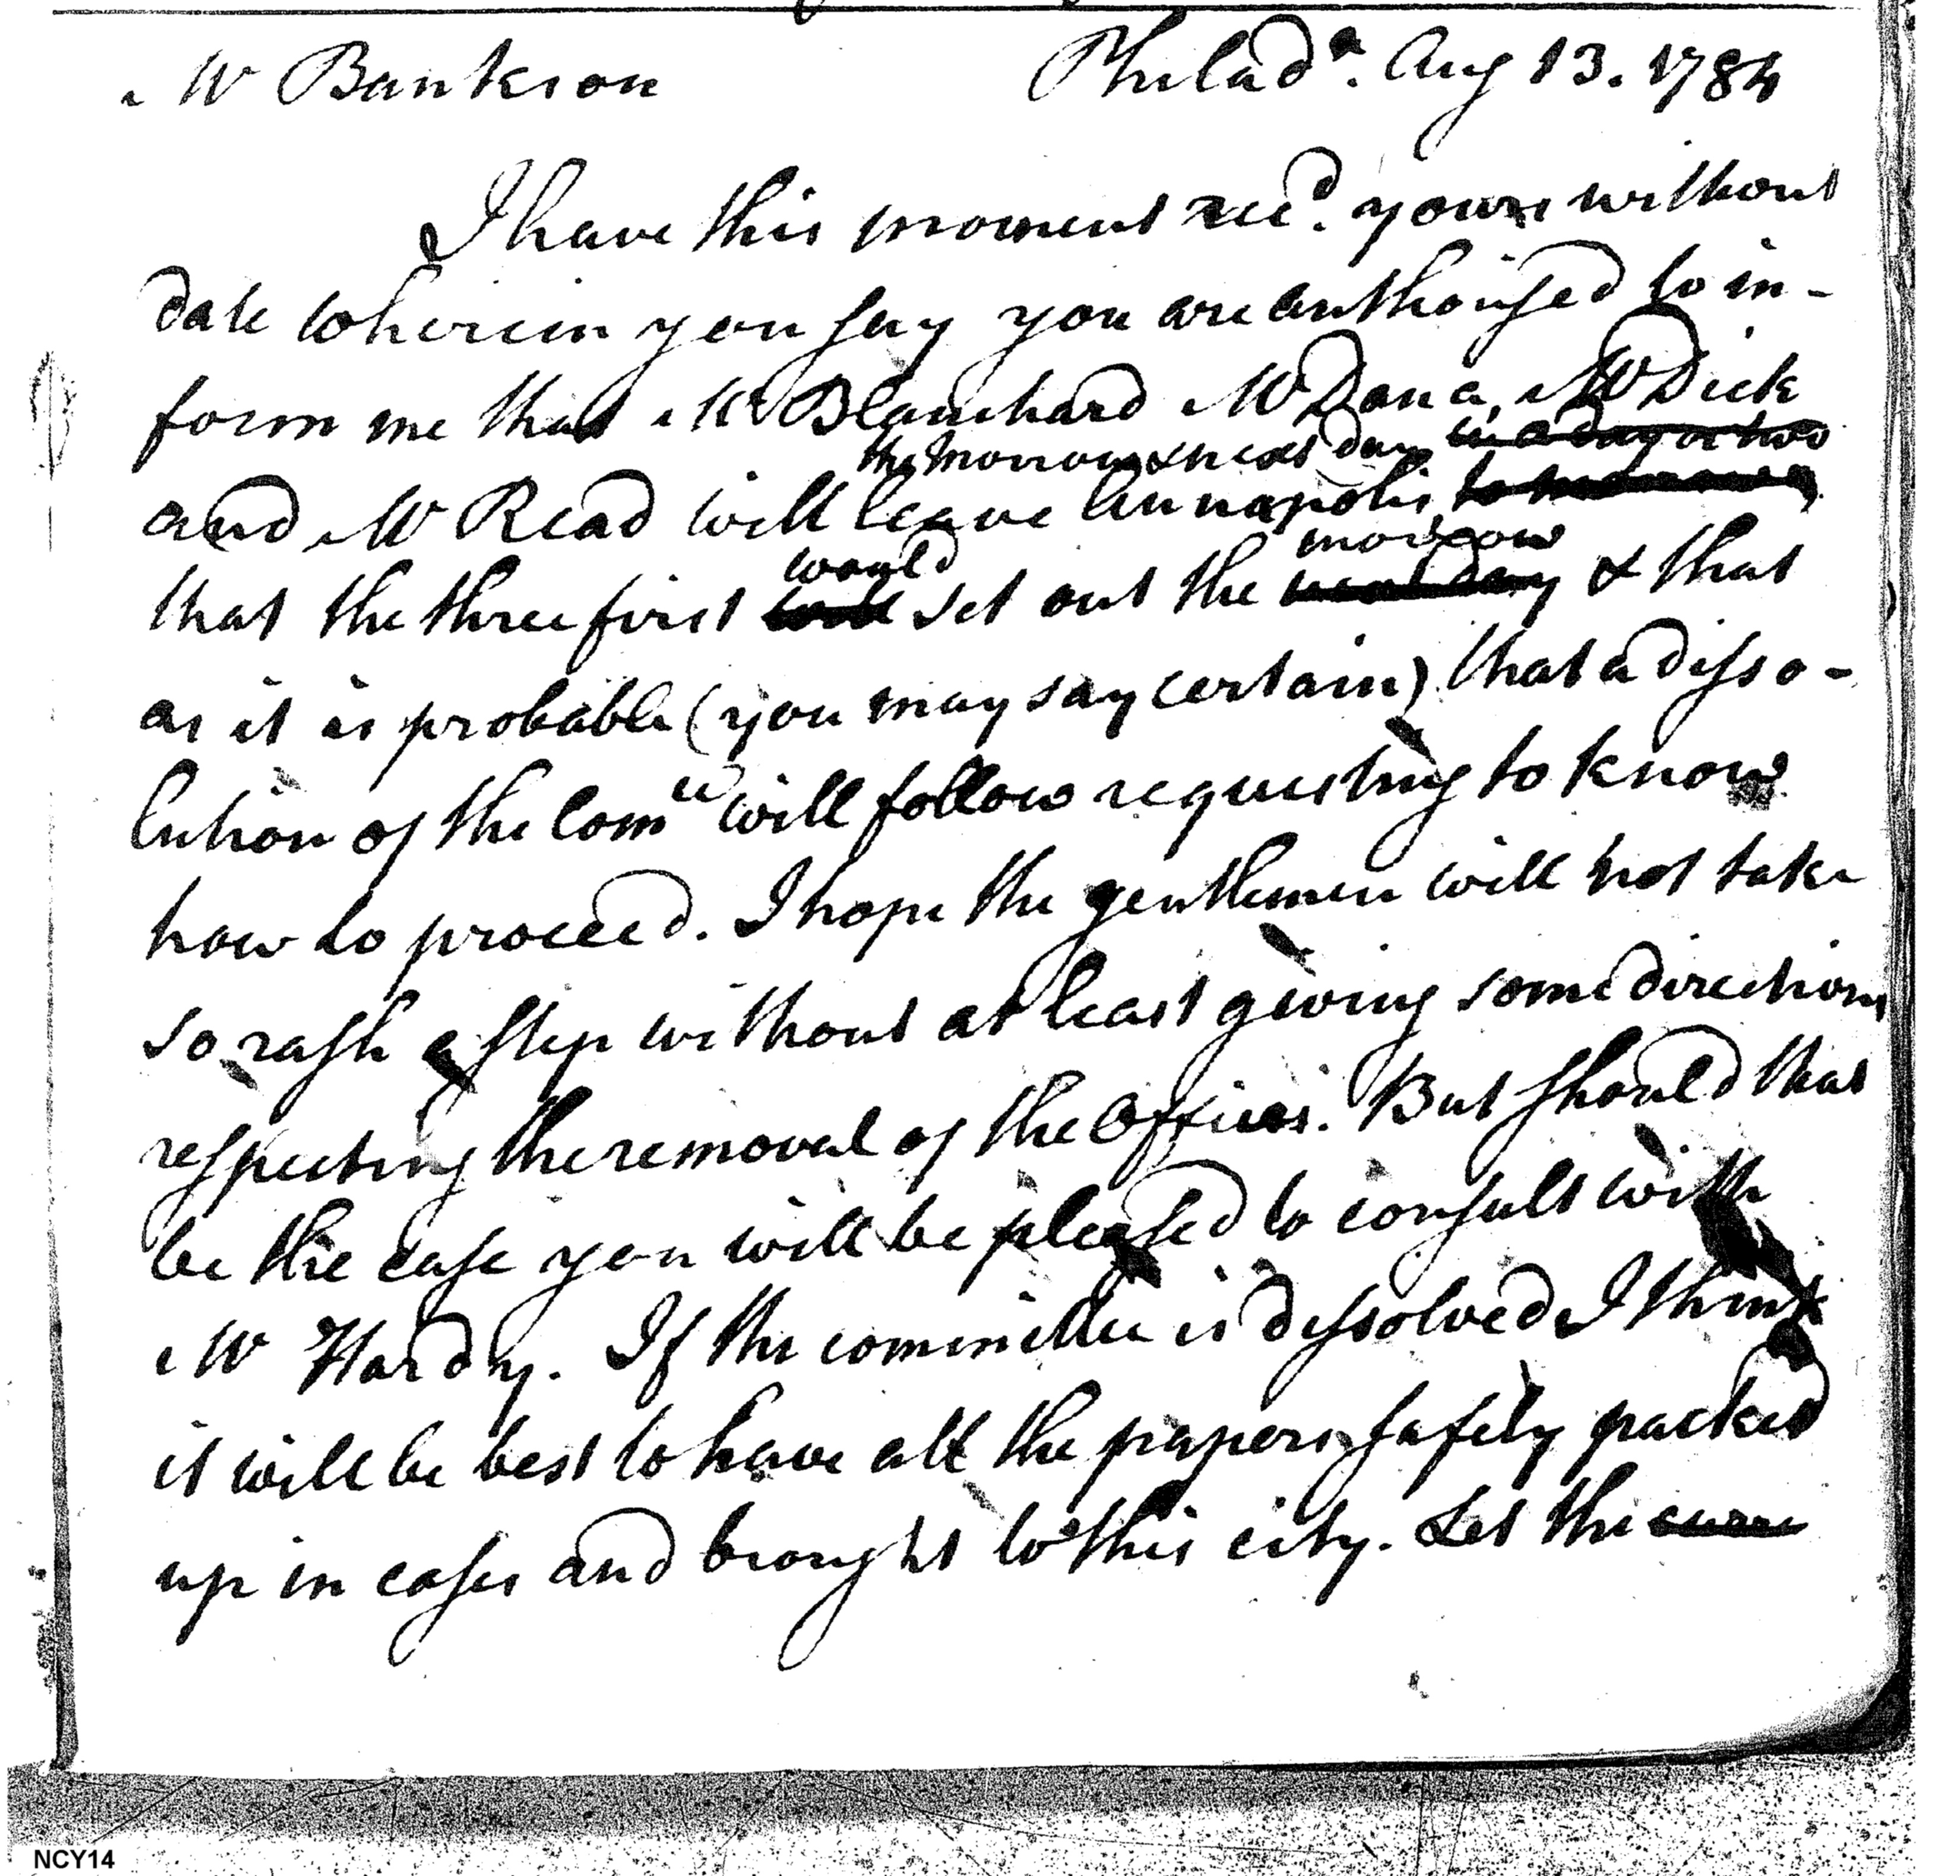 Mr Bankson Philada. Aug 13. 1784
I have this moment recd. yours without
date wherein you say you are authorised to in-
form me that Mr Blanchard Mr Dana, Mr Dick
the morrow & next day in a day or two
and Mr Read will leave Annapolis to morrow
would morrow
that the three first will set out the next day & that
as it is probable (you may say certain) that a disso-
lution of the Comee will follow requesting to know
how to proceed. I hope the gentlemen will not take
so rash a step without at least giving some directions
respecting the removal of the Offices. But should that
be the case you will be pleased to consult with
Mr Hardy. If the committee is dissolved I think
it will be best to have all the papers safely packed
up in cases and brought to this city. Let the
NCY14